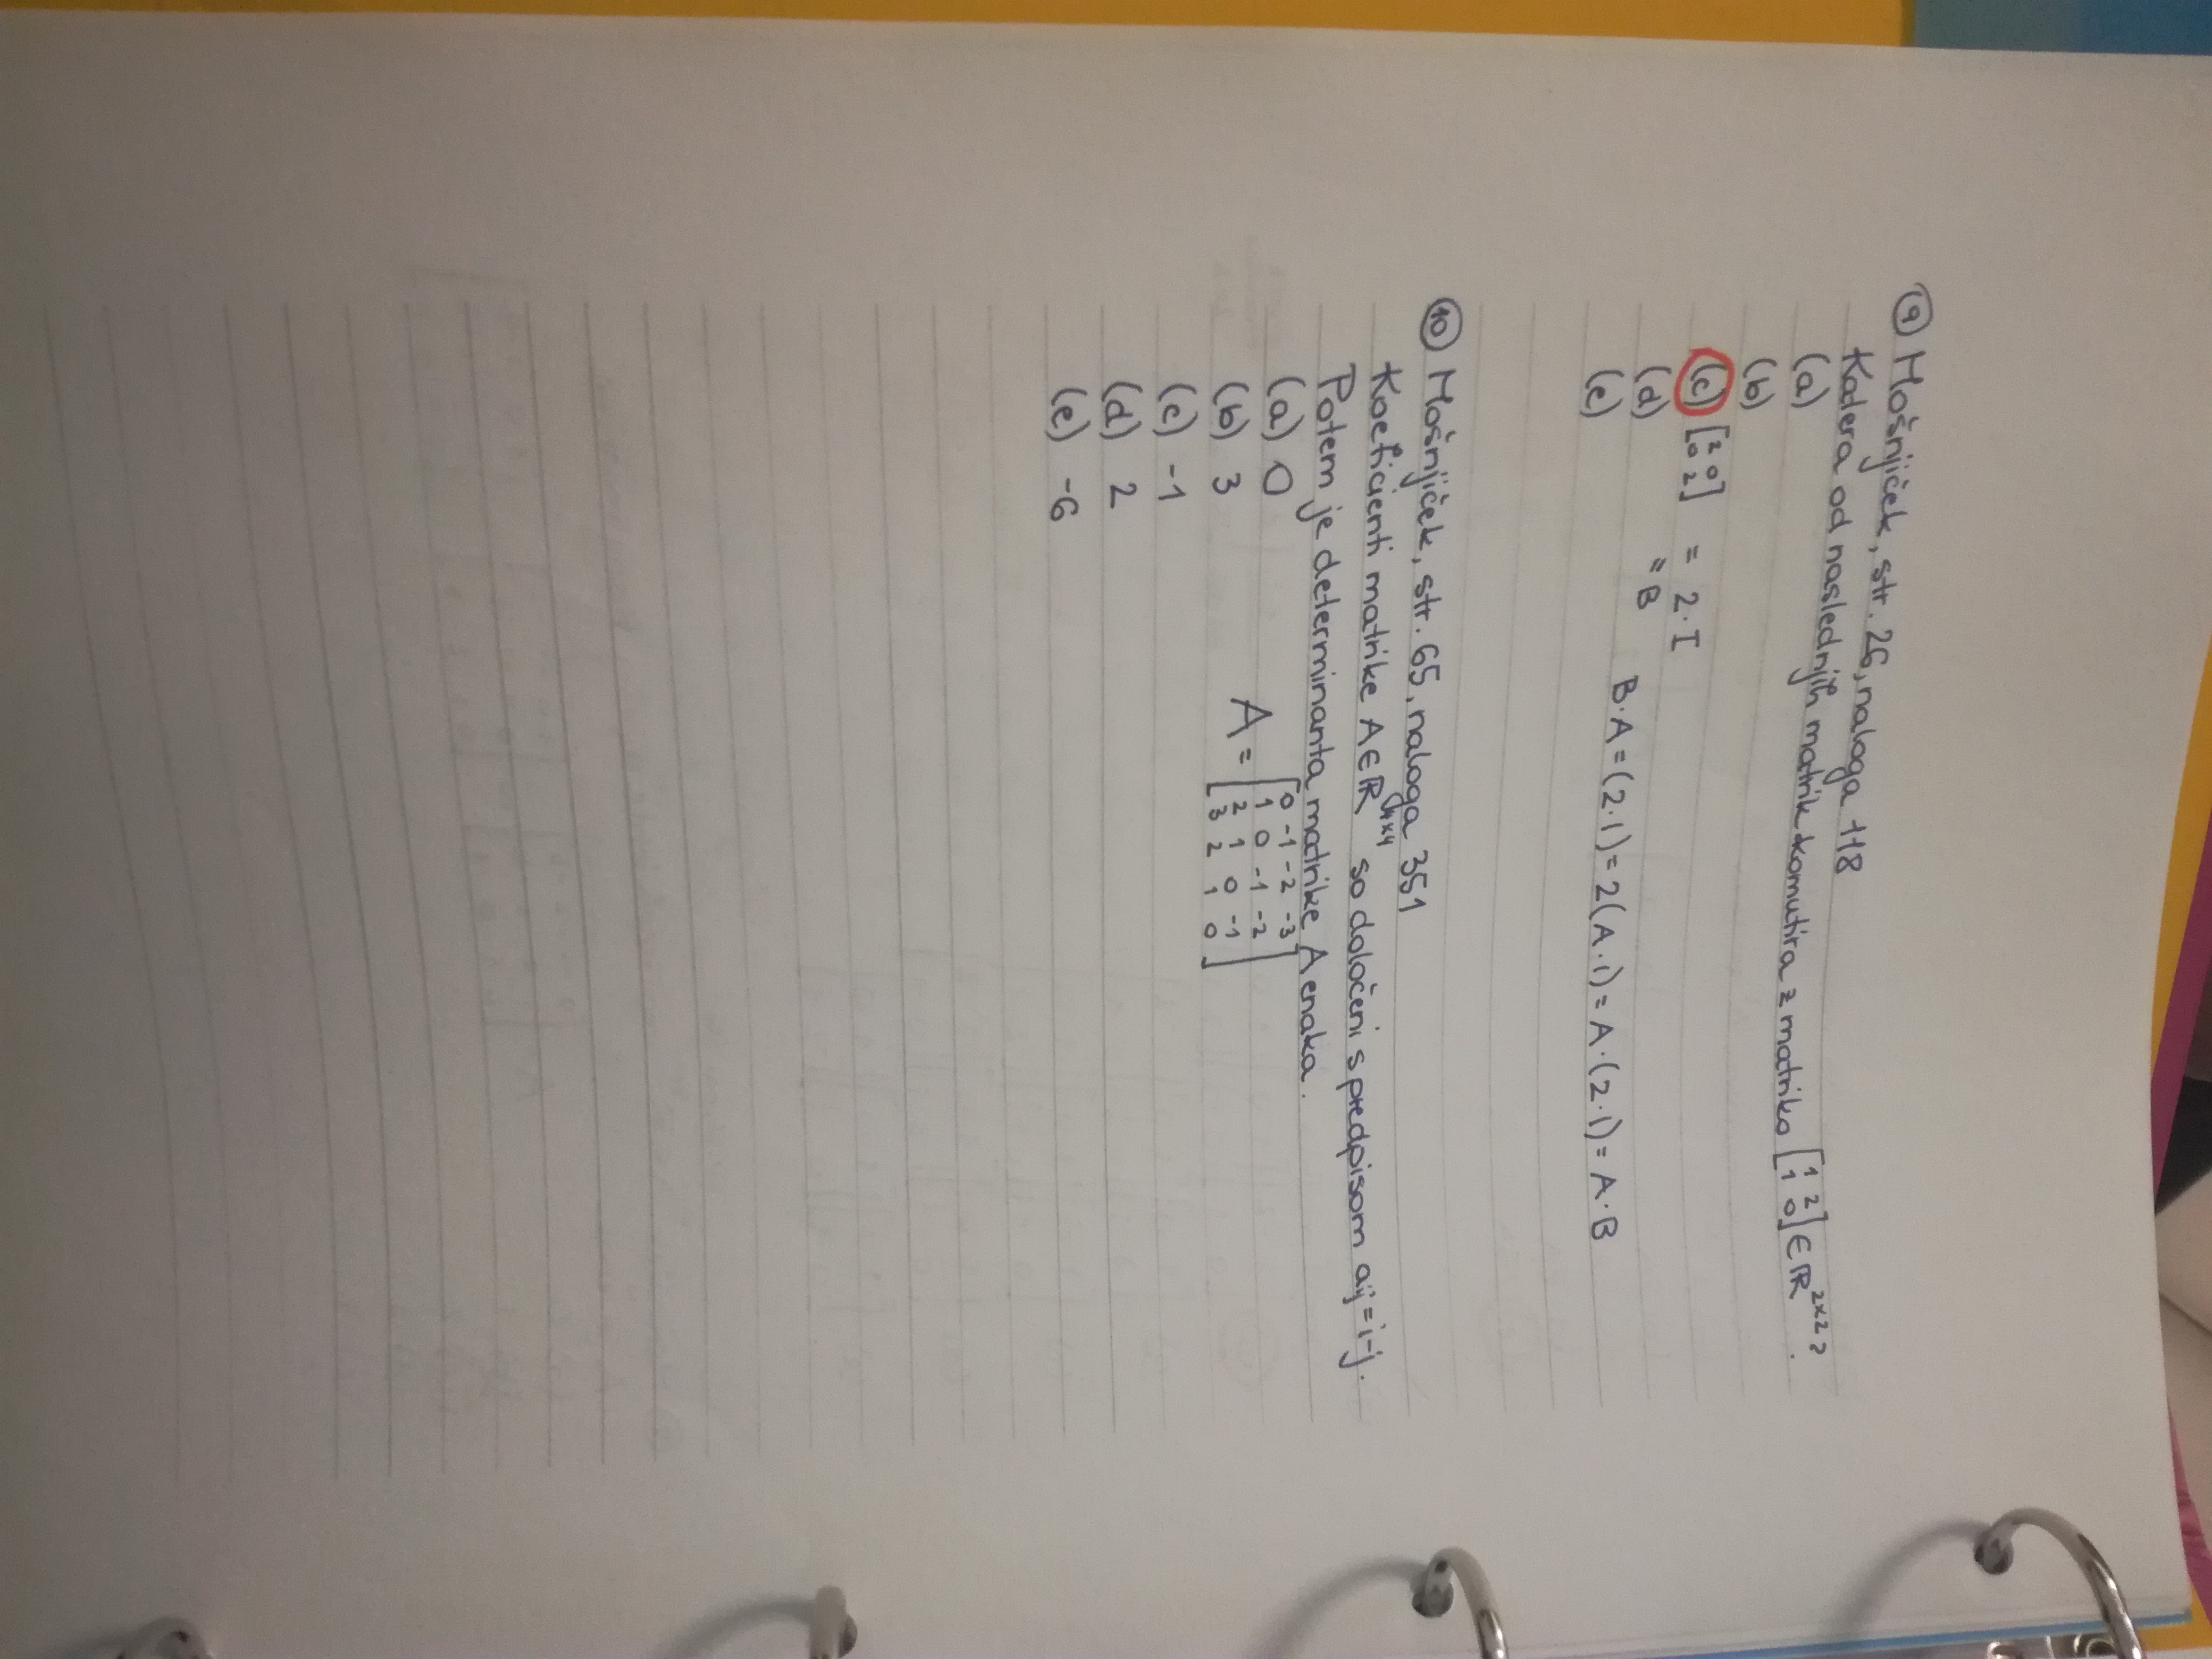 9 Mošnjiček, str. 26, naloga 118
Katera od naslednjih matrik komutira z matriko [1 2 1 0] ∈ ℝ^2×2?
(a)
(b)
(c) [2 0 0 2] = 2·I
= B
(d)
B·A = (2·1) = 2(A·1) = A·(2·1) = A·B
(e)
10 Mošnjiček, str. 65, naloga 351
Koeficienti matrike A∈ℝ^4×4 so določeni s predpisom aij = i-j.
Potem je determinanta matrike A enaka.
(a) 0
A = [0 -1 -2 -3
1 0 -1 -2
2 1 0 -1
3 2 1 0]
(b) 3
(c) -1
(d) 2
(e) -6